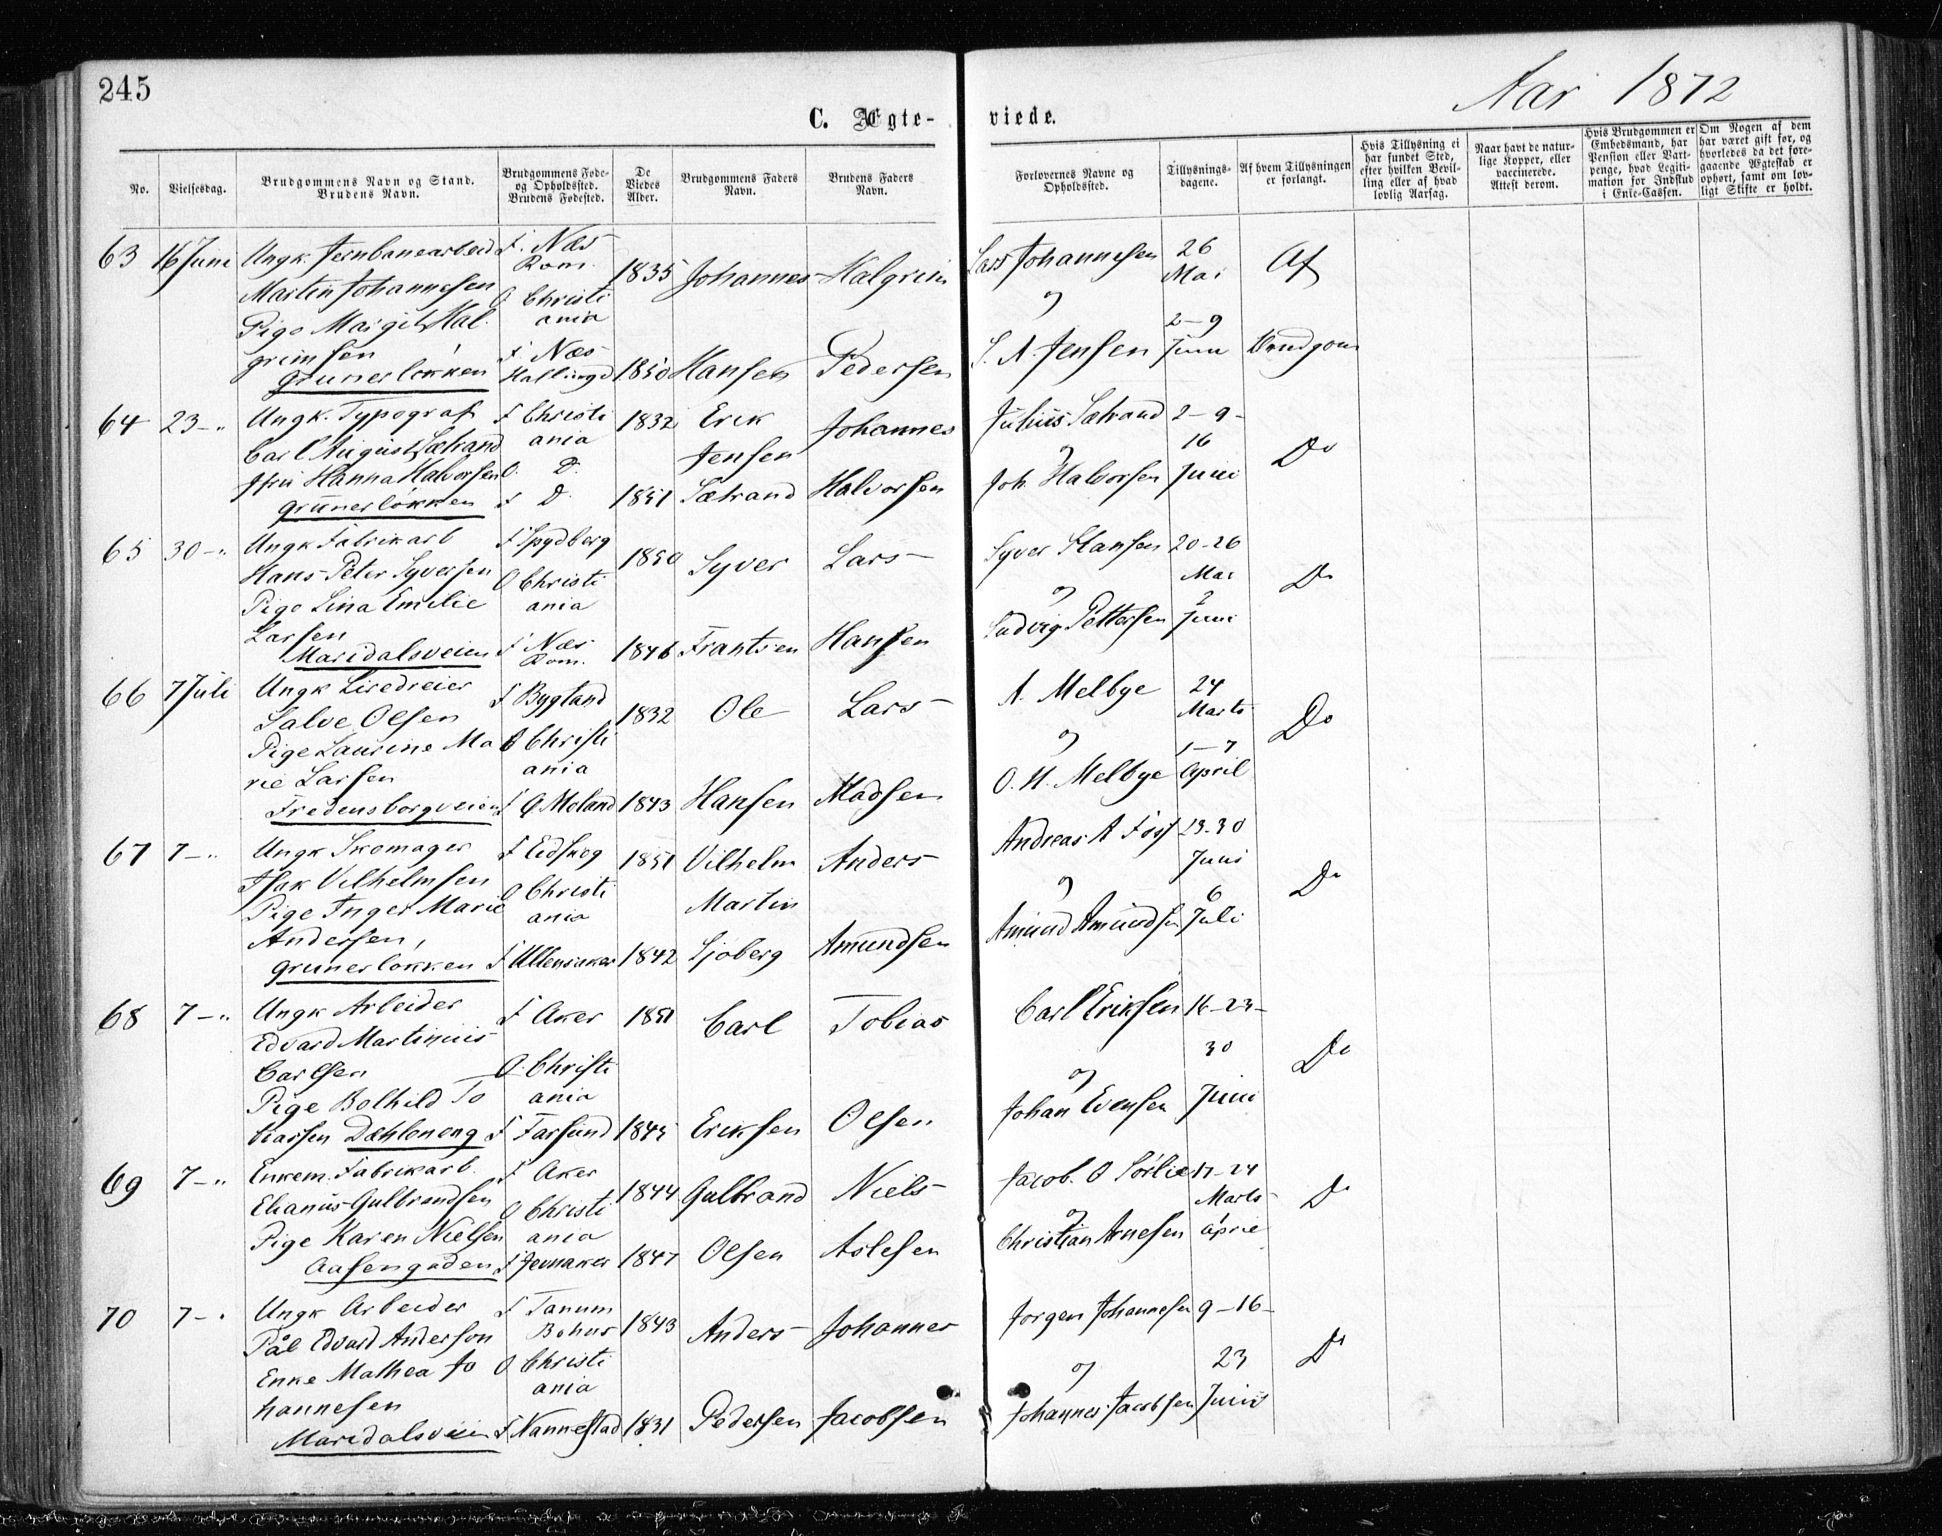 245
Aar 1872
C. Ægte-
viede.
No.
Vielsesdag.
Brudgommens Navn og Stand.
Brudens Navn.
Brudgommens Føde-
og Opholdssted.
Brudens Fødested.
De
Viedes
Alder.
Brudgommens Faders
Navn.
Brudens Faders
Navn.
Forlovernes Navne og
Opholdssted.
Tillysnings-
dagene.
Af hvem Tillysningen
er forlangt.
Hvis Tillysning ei
har fundet Sted,
efter hvilken Bevil-
ling eller af hvad
lovlig Aarsag.
Naar havt de natur-
lige Kopper, eller
vaccinerede.
Attest derom.
Hvis Brudgommen er
Embedsmand, har
Pension eller Vart-
penge, hvad Legiti-
mation for Indskud
i Enke-Cassen.
Om Nogen af dem
har været gift før, og
hvorledes da det fore-
gaaende Ægteskab er
ophørt, samt om lov-
ligt Skifte er holdt.
63 16 Juni
Ungk. Jernbanearbeid
Martin Johannesen
Pige Margit Hal.
grimsen
Grunerløkken
F. Næs
Rom.
O Christi
ania
F Næs
Hallingd
1835
1850
Johannes
Hansen
Halgrim
Pedersen
Lars Johannesen
og
S. A. Jensen
26
Mai
2-9
Juni
Af
Brudgom
64 23-"
Ungk. Typograf
Carl August Sætrand
Jfru Hanna Halvorsen
Grünerløkken
F Christi
ania
O. D.
F D.
1832
1851
Erik
Jensen
Sætrand
Johannes
Halvorsen
Julius Sætrand
og
Joh. Halvorsen
2-9-
16
Juni
Do
65 30-"
Ungk Fabrikarb
Hans Peter Syversen
Pige Lina Emilie
Larsen
Maridalsveien
F Spydberg
O Christi
ania
F Næs
Rom.
1850
1846
Syver
Frantsen
Lars
Hansen
Syver Hansen
og
Ludvig Pettersen
20-26
Mai
2
Juni
Do
66 7 Juli
Ungk
Salve Olsen
Pige Laurine Ma
rie Larsen
Fredensborgveien
F Bygland
O Christi
ania
F Ø Moland
1832
1843
Ole
Hansen
Lars
Madsen
A. Melbye
og
O. H. Melbye
24
Marts
1-7
April
Do
67 7-"
Ungk Skomager
Isak Vilhelmsen
Pige Inger Marie
Andersen,
Grunerløkken
F Eidskog
O Christi
ania
F Ullensaker
1851
1842
Vilhelm
Martin
Sjøberg
Anders
Amundsen
Andreas A
og
Amund Amundsen
23-30
Juni
6
Juli
Do
68 7-"
Ungk Arbeider
Edvard Martinius
Carlsen
Pige Bolhild To
biassen Dæhleneng
F Aker
O. Christi
ania
F Farsund
1851
1845
Carl
Eriksen
Tobias
Olsen
Carl Eriksen
og
Johan Evensen
16-23-
30
Juni
Do
69 7-"
Enkem. Fabrikarb.
Elianus Gulbrandsen
Pige Karen Nielsen
Aasengaden
F Aker
O Christi
ania
F Jevnaker
1844
1847
Gulbrand
Olsen
Niels
Aslesen
Jacob. O Sørlie
og
Christian Arnesen
17-24
Marts
April
Do
70 7-"
Ungk Arbeider
Pål Edvard Anderson
Enke Mathea Jo
hannesen
Maridalsveien
F Tanum
Bohus
O Christi
ania
F Nannestad
1843
1831
Anders
Pedersen
Johannes
Jacobsen
Jørgen Johannesen
og
Johannes Jacobsen
9-16-
23
Juni
Do